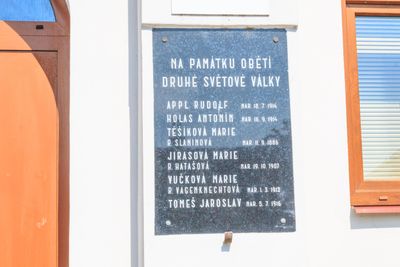 NA PAMÁTKU OBĚTÍ
DRUHÉ SVĚTOVÉ VÁLKY
APPL RUDOLF NAR. 18. 7. 1914
HOLAS ANTONÍN NAR. 18. 9. 1914
TĚŠÍKOVÁ MARIE
R. SLANINOVÁ NAR. 11. 9. 1886
JIRASOVÁ MARIE
R. HATAŠOVÁ NAR. 19. 10. 1907
VUČKOVÁ MARIE
R. VAGENKNECHTOVÁ NAR. 1. 3. 1913
TOMEŠ JAROSLAV NAR. 5. 7. 1916